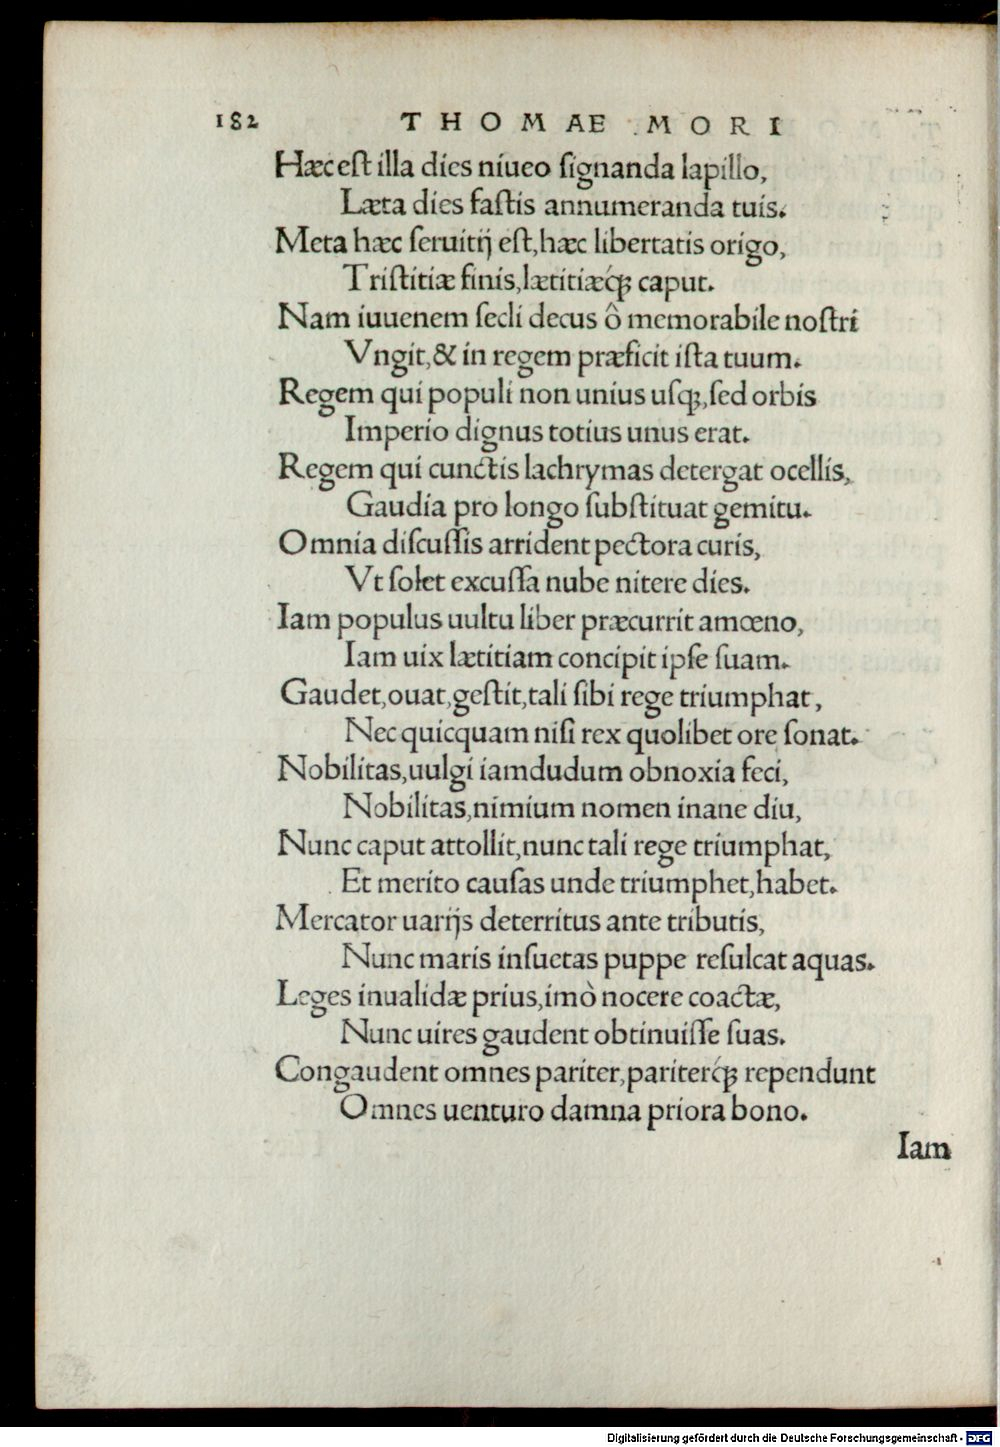 182 THOMAE MORI
Hæc eſt illa dies niueo ſignanda lapillo,
Læta dies faſtis annumeranda tuis.
Meta hæc ſeruitij eſt, hæc libertatis origo,
Triſtitiæ finis, lætitiæq́ꝫ caput.
Nam iuuenem ſecli decus ô memorabile noſtri
Vngit, & in regem præficit iſta tuum.
Regem qui populi non unius uſqꝫ, ſed orbis
Imperio dignus totius unus erat.
Regem qui cunctis lachrymas detergat ocellis,
Gaudia pro longo ſubſtituat gemitu.
Omnia diſcuſſis arrident pectora curis,
Vt ſolet excuſſa nube nitere dies.
Iam populus uultu liber præcurrit amœno,
Iam uix lætitiam concipit ipſe ſuam.
Gaudet, ouat, geſtit, tali ſibi rege triumphat,
Nec quicquam niſi rex quolibet ore ſonat.
Nobilitas, uulgi iamdudum obnoxia feci,
Nobilitas, nimium nomen inane diu,
Nunc caput attollit, nunc tali rege triumphat,
Et merito cauſas unde triumphet, habet.
Mercator uarijs deterritus ante tributis,
Nunc maris inſuetas puppe reſulcat aquas.
Leges inualidæ prius, imò nocere coactæ,
Nunc uires gaudent obtinuiſſe ſuas.
Congaudent omnes pariter, pariterq́ꝫ rependunt
Omnes uenturo damna priora bono.
Iam
Digitalisierung gefördert durch die Deutsche Forschungsgemeinschaft - DFG